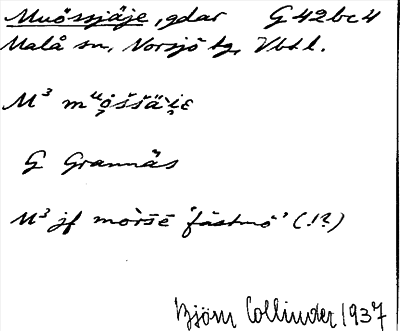 Muössjäje, gdar G 42bc4
Malå sn, Norsjö tg, Vbtl.
M³ mᵘo̭ššä̀i̭ε
G Grannäs
M³ jf mòršē 'fästmö' (!?)
Björn Collinder 1937